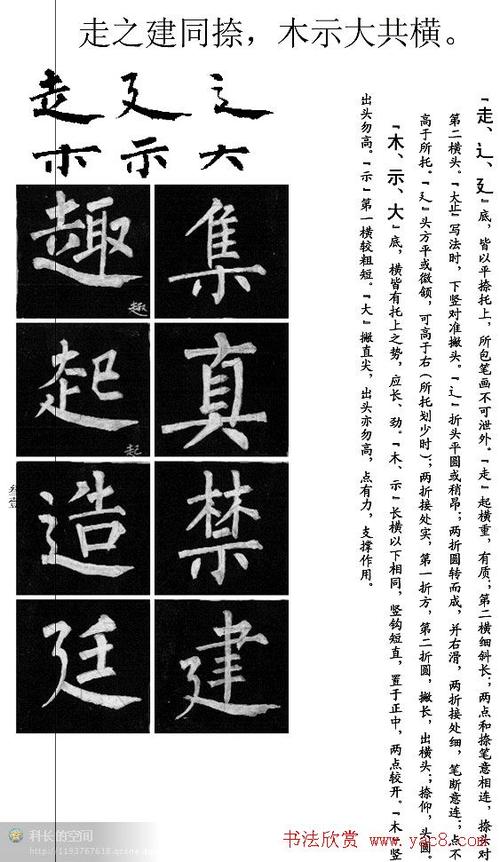 走之建同捺，木示大共横。
走 廴 辶
木 示 大
趣 集
趣
起 真
起
造 禁
廷 建
叁壹
『走、辶、廴』底，皆以平捺托上，所包笔画不可泄外。『走』起横重，有质；第二横细斜长；两点和捺笔意相连，捺头对
第二横头。『大走』写法时，下竖对准撇头。『辶』折头平圆或稍昂；两折圆转而成，并右滑，两折接处细，笔断意连；点不
高于所托。『廴』头方平或微颔，可高于右（所托划少时）；两折接处实，第一折方，第二折圆，撇长，出横头；捺仰，头圆
『木、示、大』底，横皆有托上之势，应长、劲。『木、示』长横以下相同，竖钩短直，置于正中，两点较开。『木』竖
出头勿高。『示』第一横较粗短。『大』撇直尖，出头亦勿高，点有力，支撑作用。
科长的空间
http://1193767618.qzone.qq.com
书法欣赏 www.yac8.com